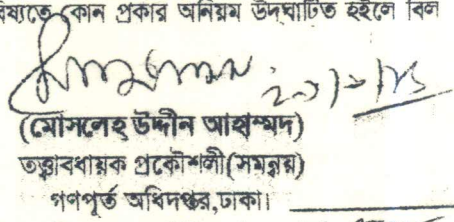 কোন প্রকার অনিয়ম উদঘাটিত হইলে বিল
(মোসলেহ্ উদ্দীন আহাম্মদ)
তত্ত্বাবধায়ক প্রকৌশলী(সমন্বয়)
গণপূর্ত অধিদপ্তর,ঢাকা।